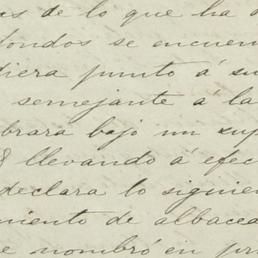 as de lo que ha
fondos se encuen
diera punto á su
semejante á la
brara bajo un sup
llevando á efec
declara lo siguien
miento de albacea
e nombró en pr